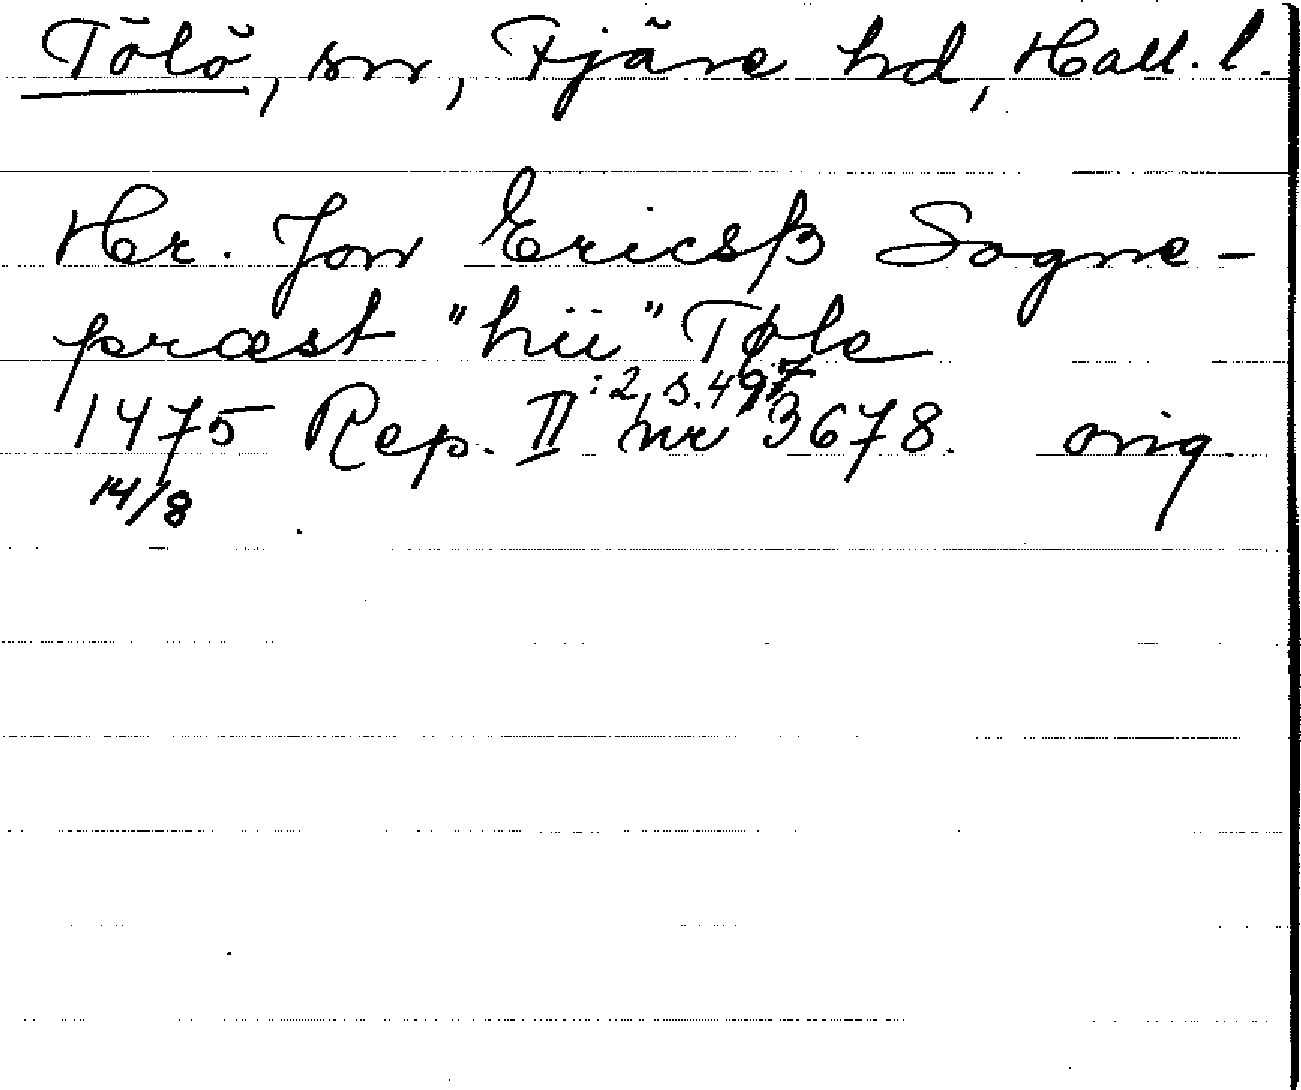 Tölö, sn, Fjäre hd, Hall. l.
Hr. Jon Ericsß Sogne-
præst "hii" Tøle
:2, s. 497
1475 Rep. II nr 3678. orig.
14/8